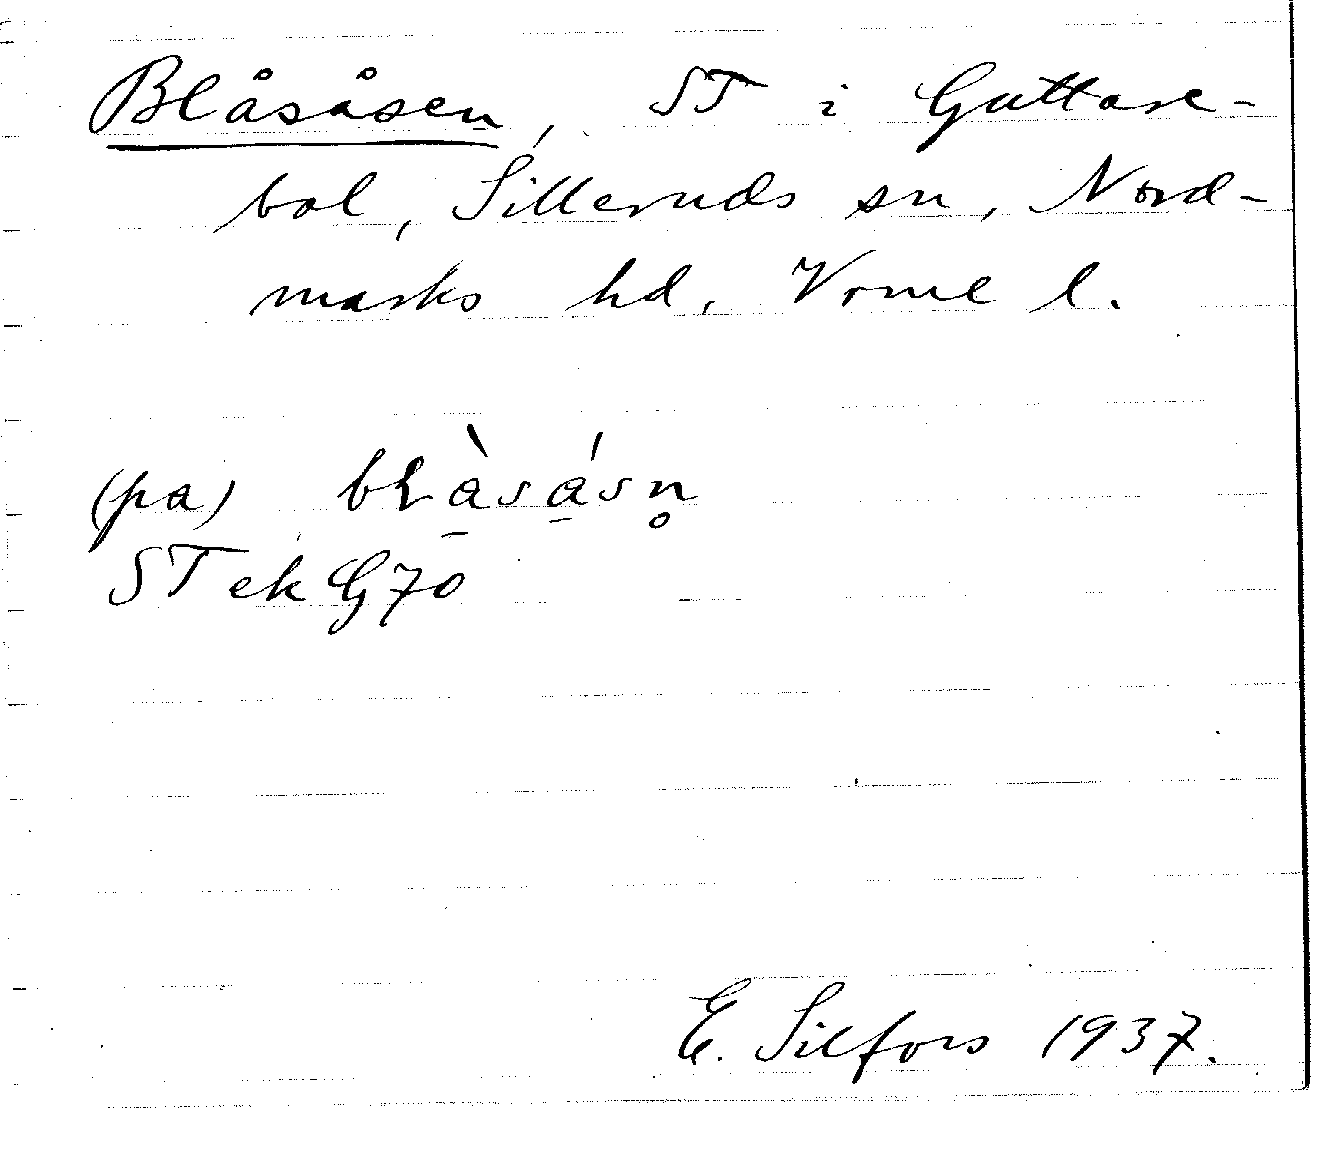 Blåsåsen, ST i Guttare-
bol, Silleruds sn, Nord-
marks hd, Vrml l.
(pa) bɫà̠sá̠sn̥
ST ek G70
E. Silfors 1937.